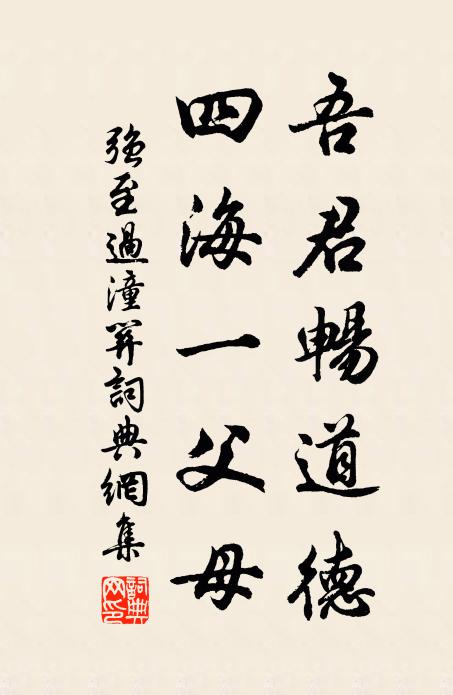 吾君暢道德
四海一父母
強至過潼關詞典網集
詞典網印